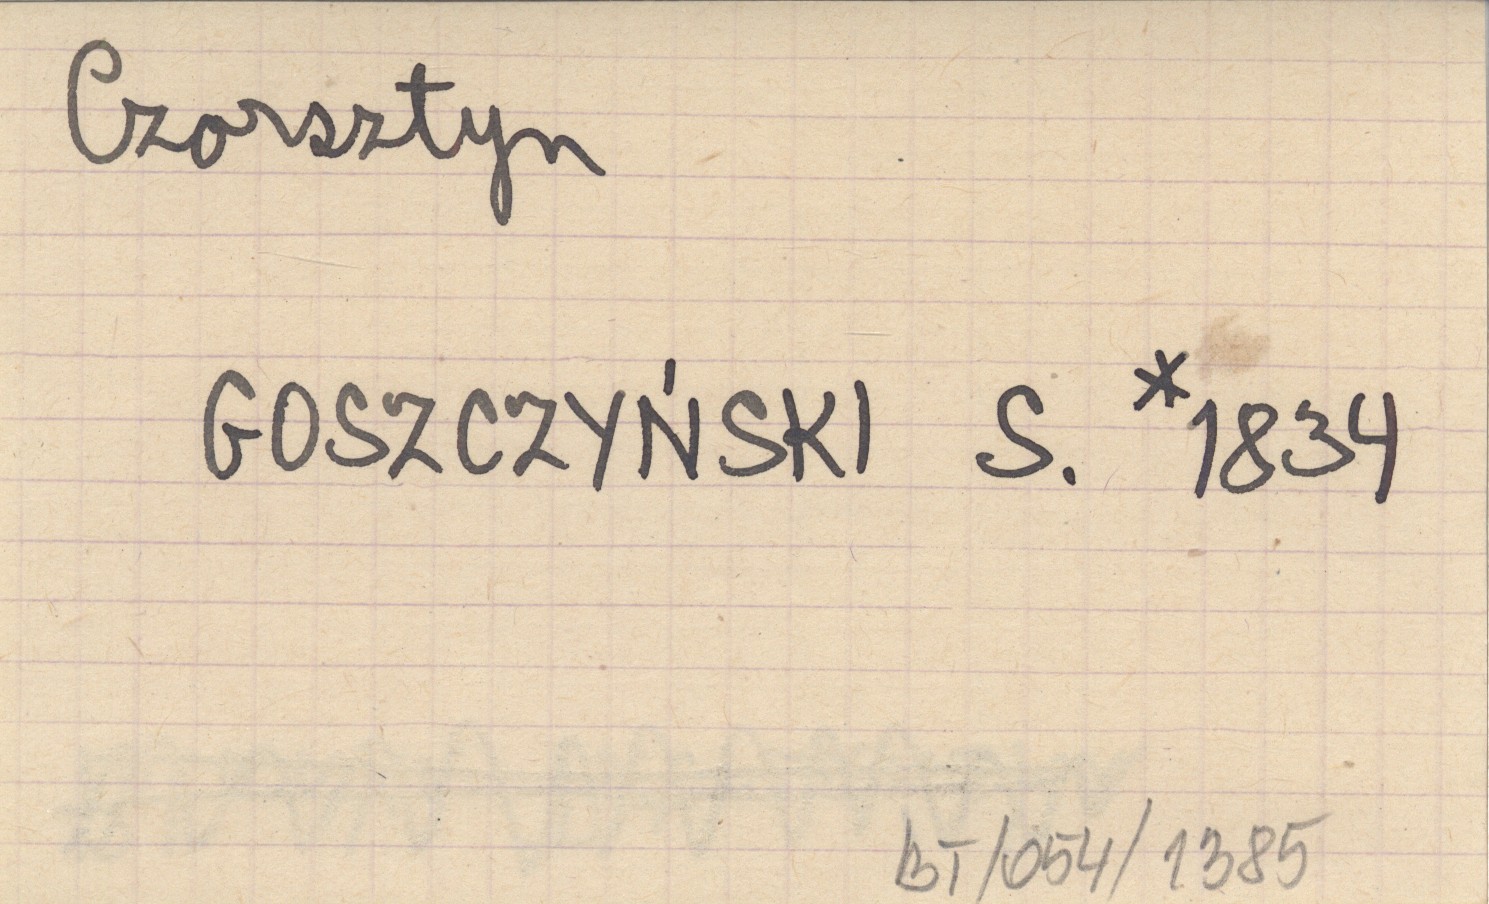 Czorsztyn
GOSZCZYŃSKI S. *1834
BT/054/1385